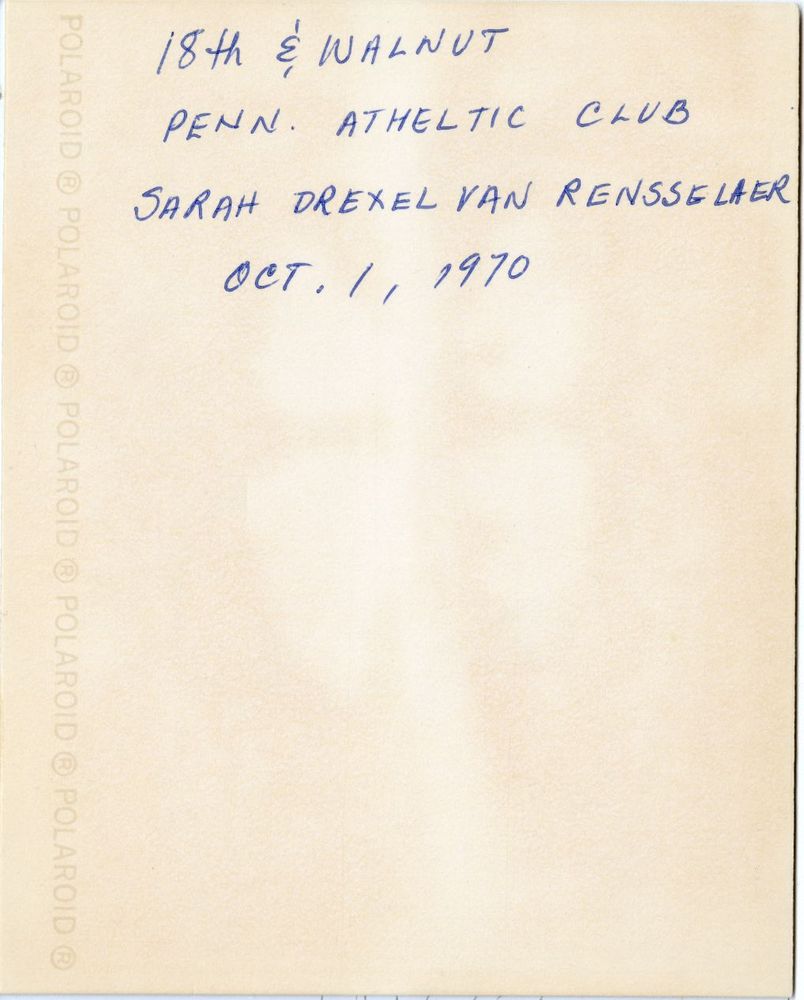 18th & WALNUT
PENN. ATHELTIC CLUB
SARAH DREXEL VAN RENSSELAER
OCT. 1, 1970
POLAROID ® POLAROID ® POLAROID ® POLAROID ® POLAROID ®